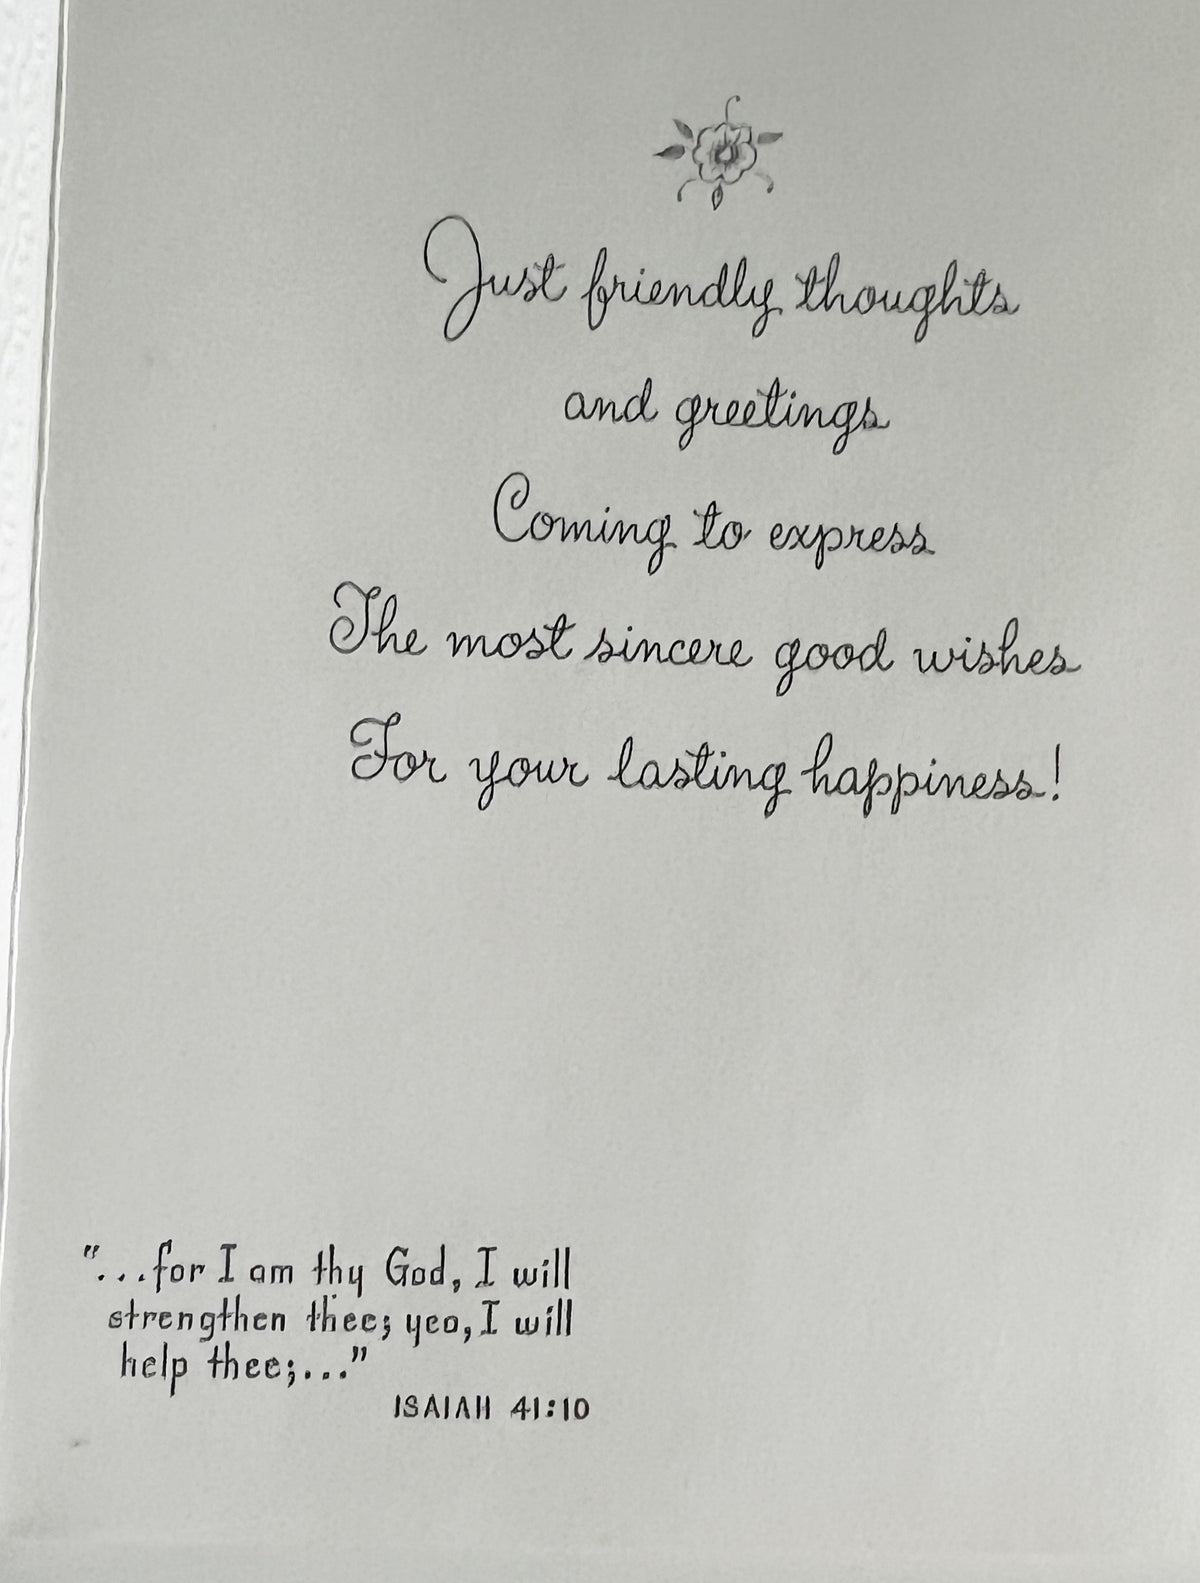 Just friendly thoughts
and greetings
Coming to express
The most sincere good wishes
For your lasting happiness!
"...for I am thy God, I will
strengthen thee; yea, I will
help thee;..."
ISAIAH 41:10